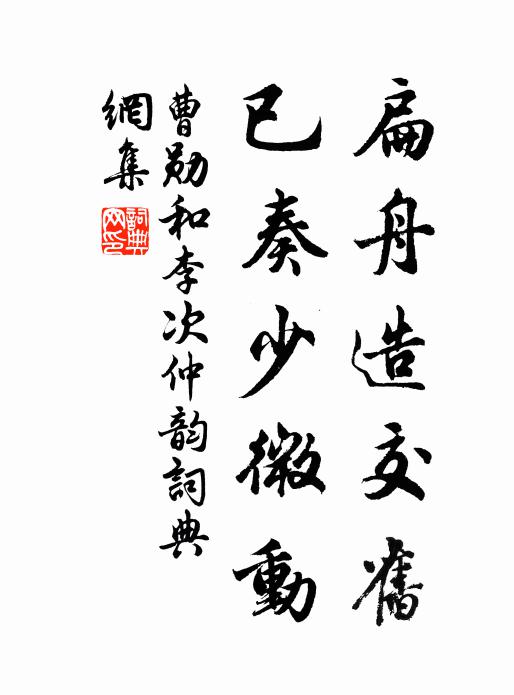 扁舟造交舊
已奏少微動
曹勛和李次仲韵詞典
網集
詞典
网印